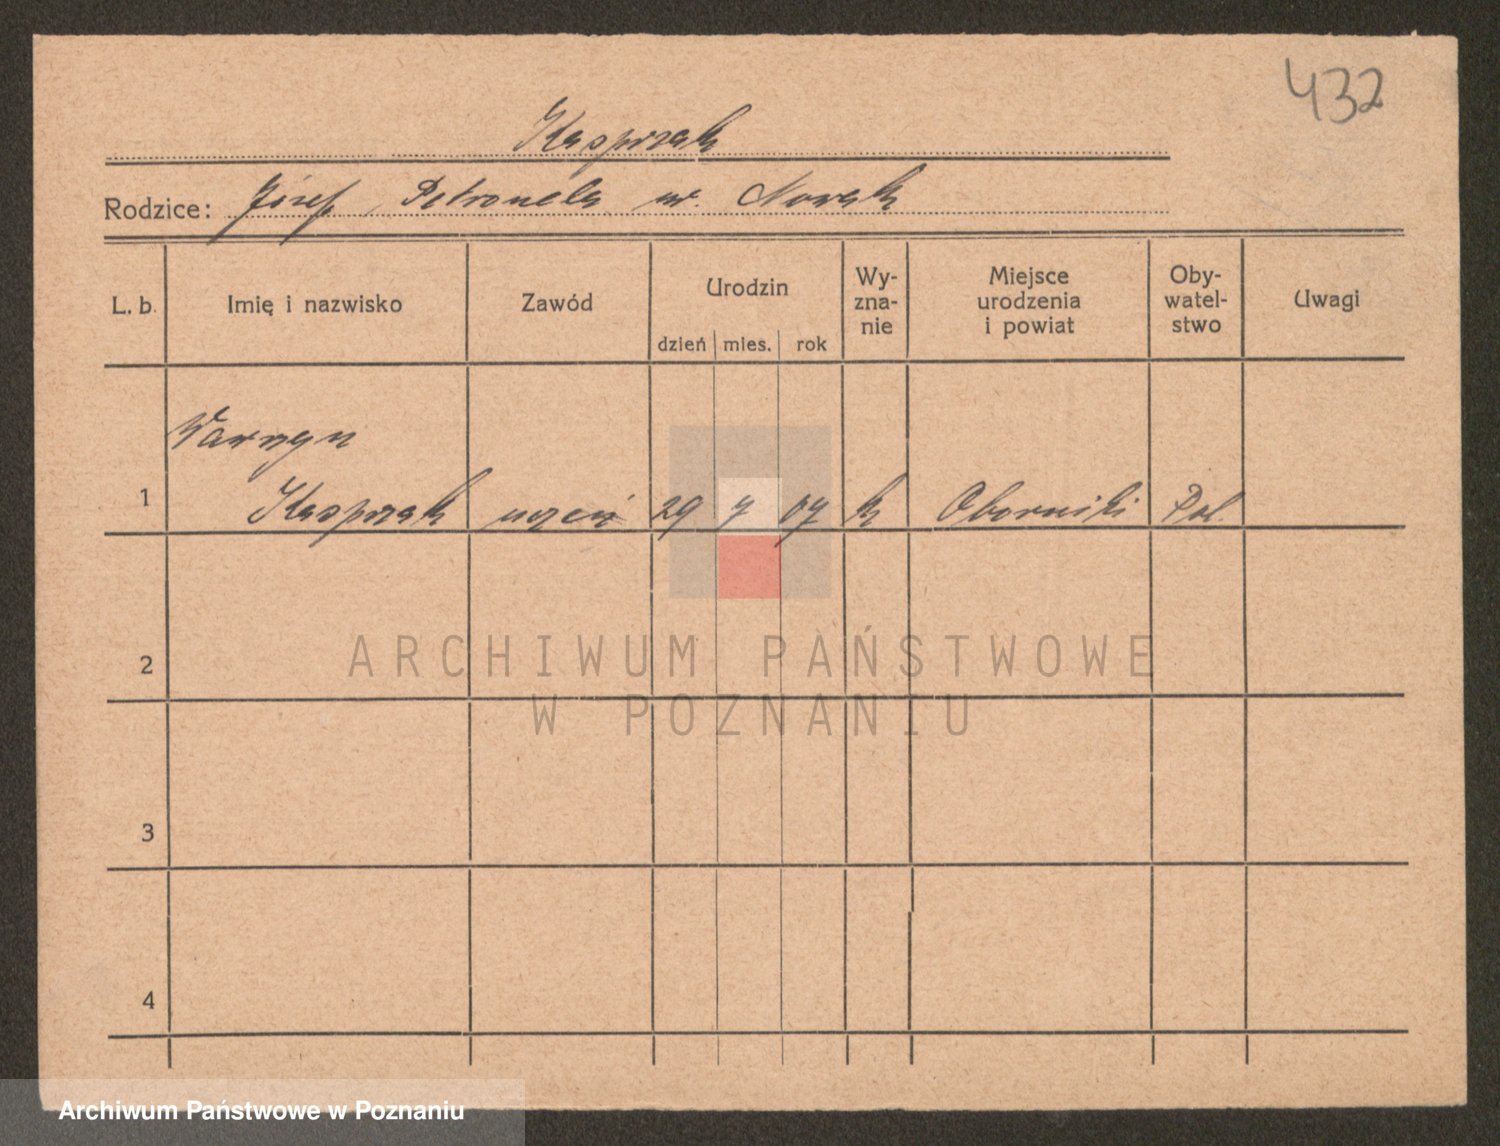 432
Kasprzak
Rodzice: Józef, Petronela ur. Nowak
L. b. Imię i nazwisko Zawód Urodzin Wy-zna-nie Miejsce urodzenia i powiat Oby-watel-stwo Uwagi
dzień mies. rok
Warzyn
1 Kasprzak uczeń 29 7 07 k Oborniki Pol.
2
ARCHIWUM PAŃSTWOWE
W POZNANIU
3
4
Archiwum Państwowe w Poznaniu